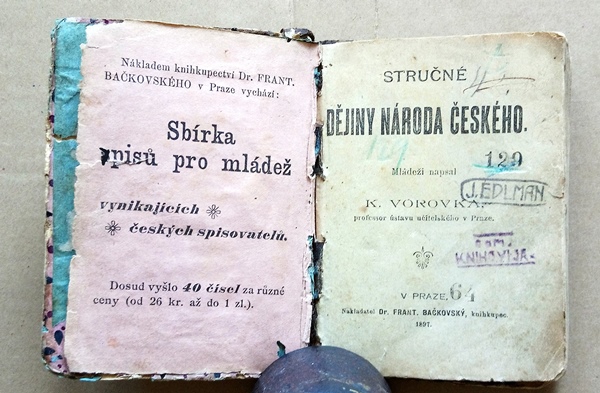 Nákladem knihkupectví Dr. FRANT.
BAČKOVSKÉHO v Praze vychází:
Sbírka
spisů pro mládež
vynikajících
českých spisovatelů.
Dosud vyšlo 40 čísel za různé
ceny (od 26 kr. až do 1 zl.).
STRUČNÉ
DĚJINY NÁRODA ČESKÉHO.
129
Mládeži napsal
K. VOROVKA,
J. EDLMAN
professor ústavu učitelského v Praze.
KNIHOVNA
V PRAZE,
64
Nakladatel Dr. FRANT. BAČKOVSKÝ, knihkupec.
1897.